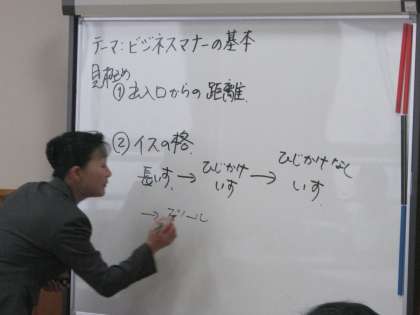 テーマ:ビジネスマナーの基本
見極め
①出入口からの距離
②イスの格
長いす→ひじかけいす→ひじかけなしいす
→